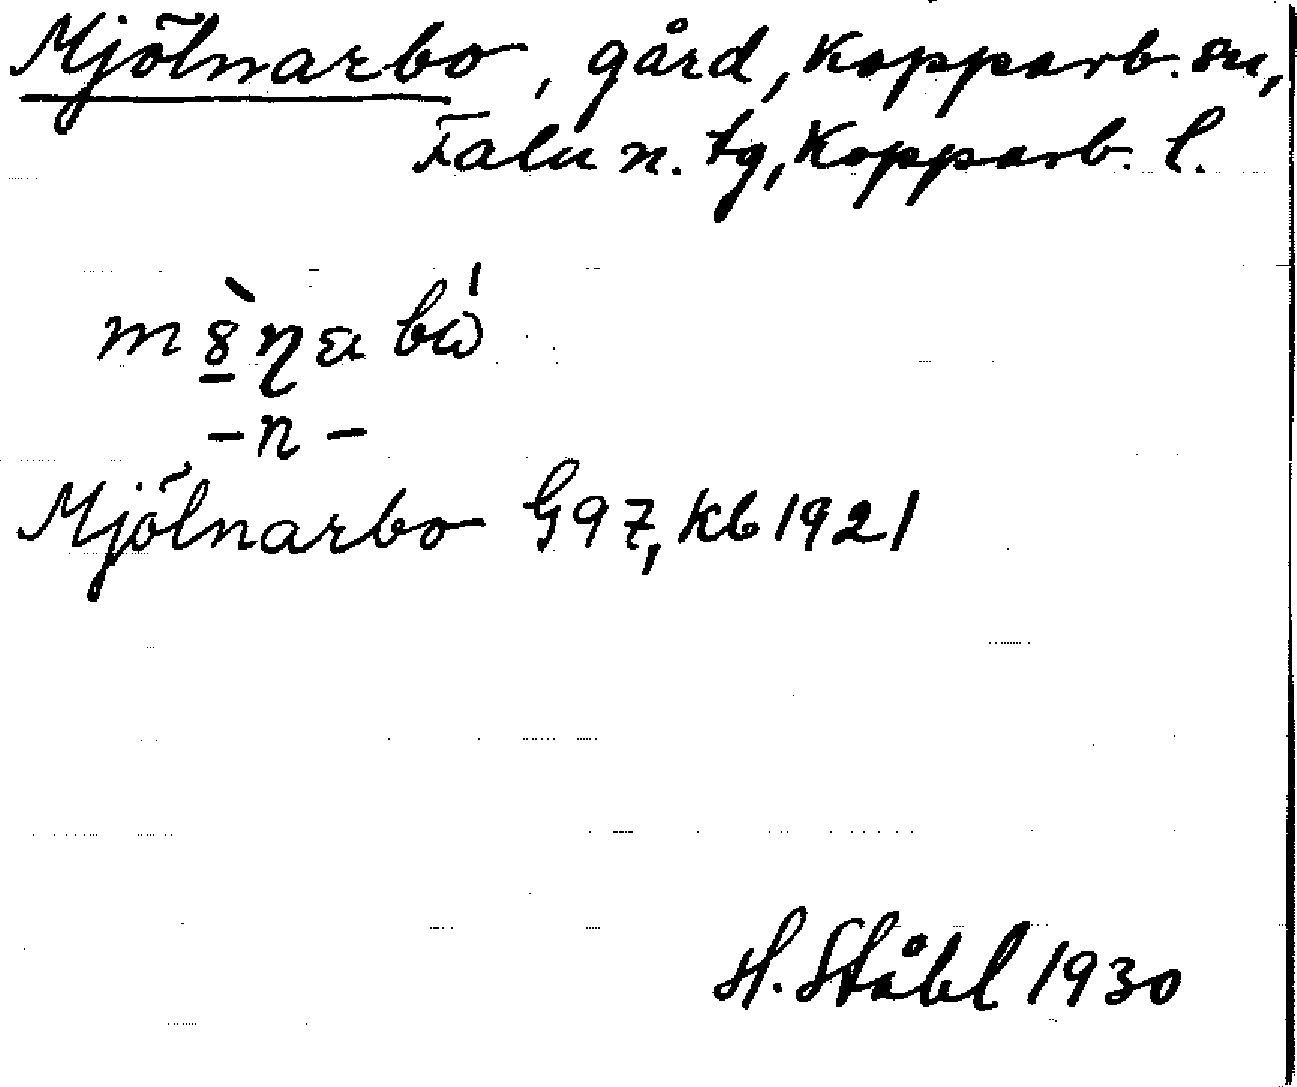 Mjölnarbo, gård, Kopparb. sn,
Falu n. tg, Kopparb. l.
-n-
Mjölnarbo G97, Kb 1921
H. Ståhl 1930